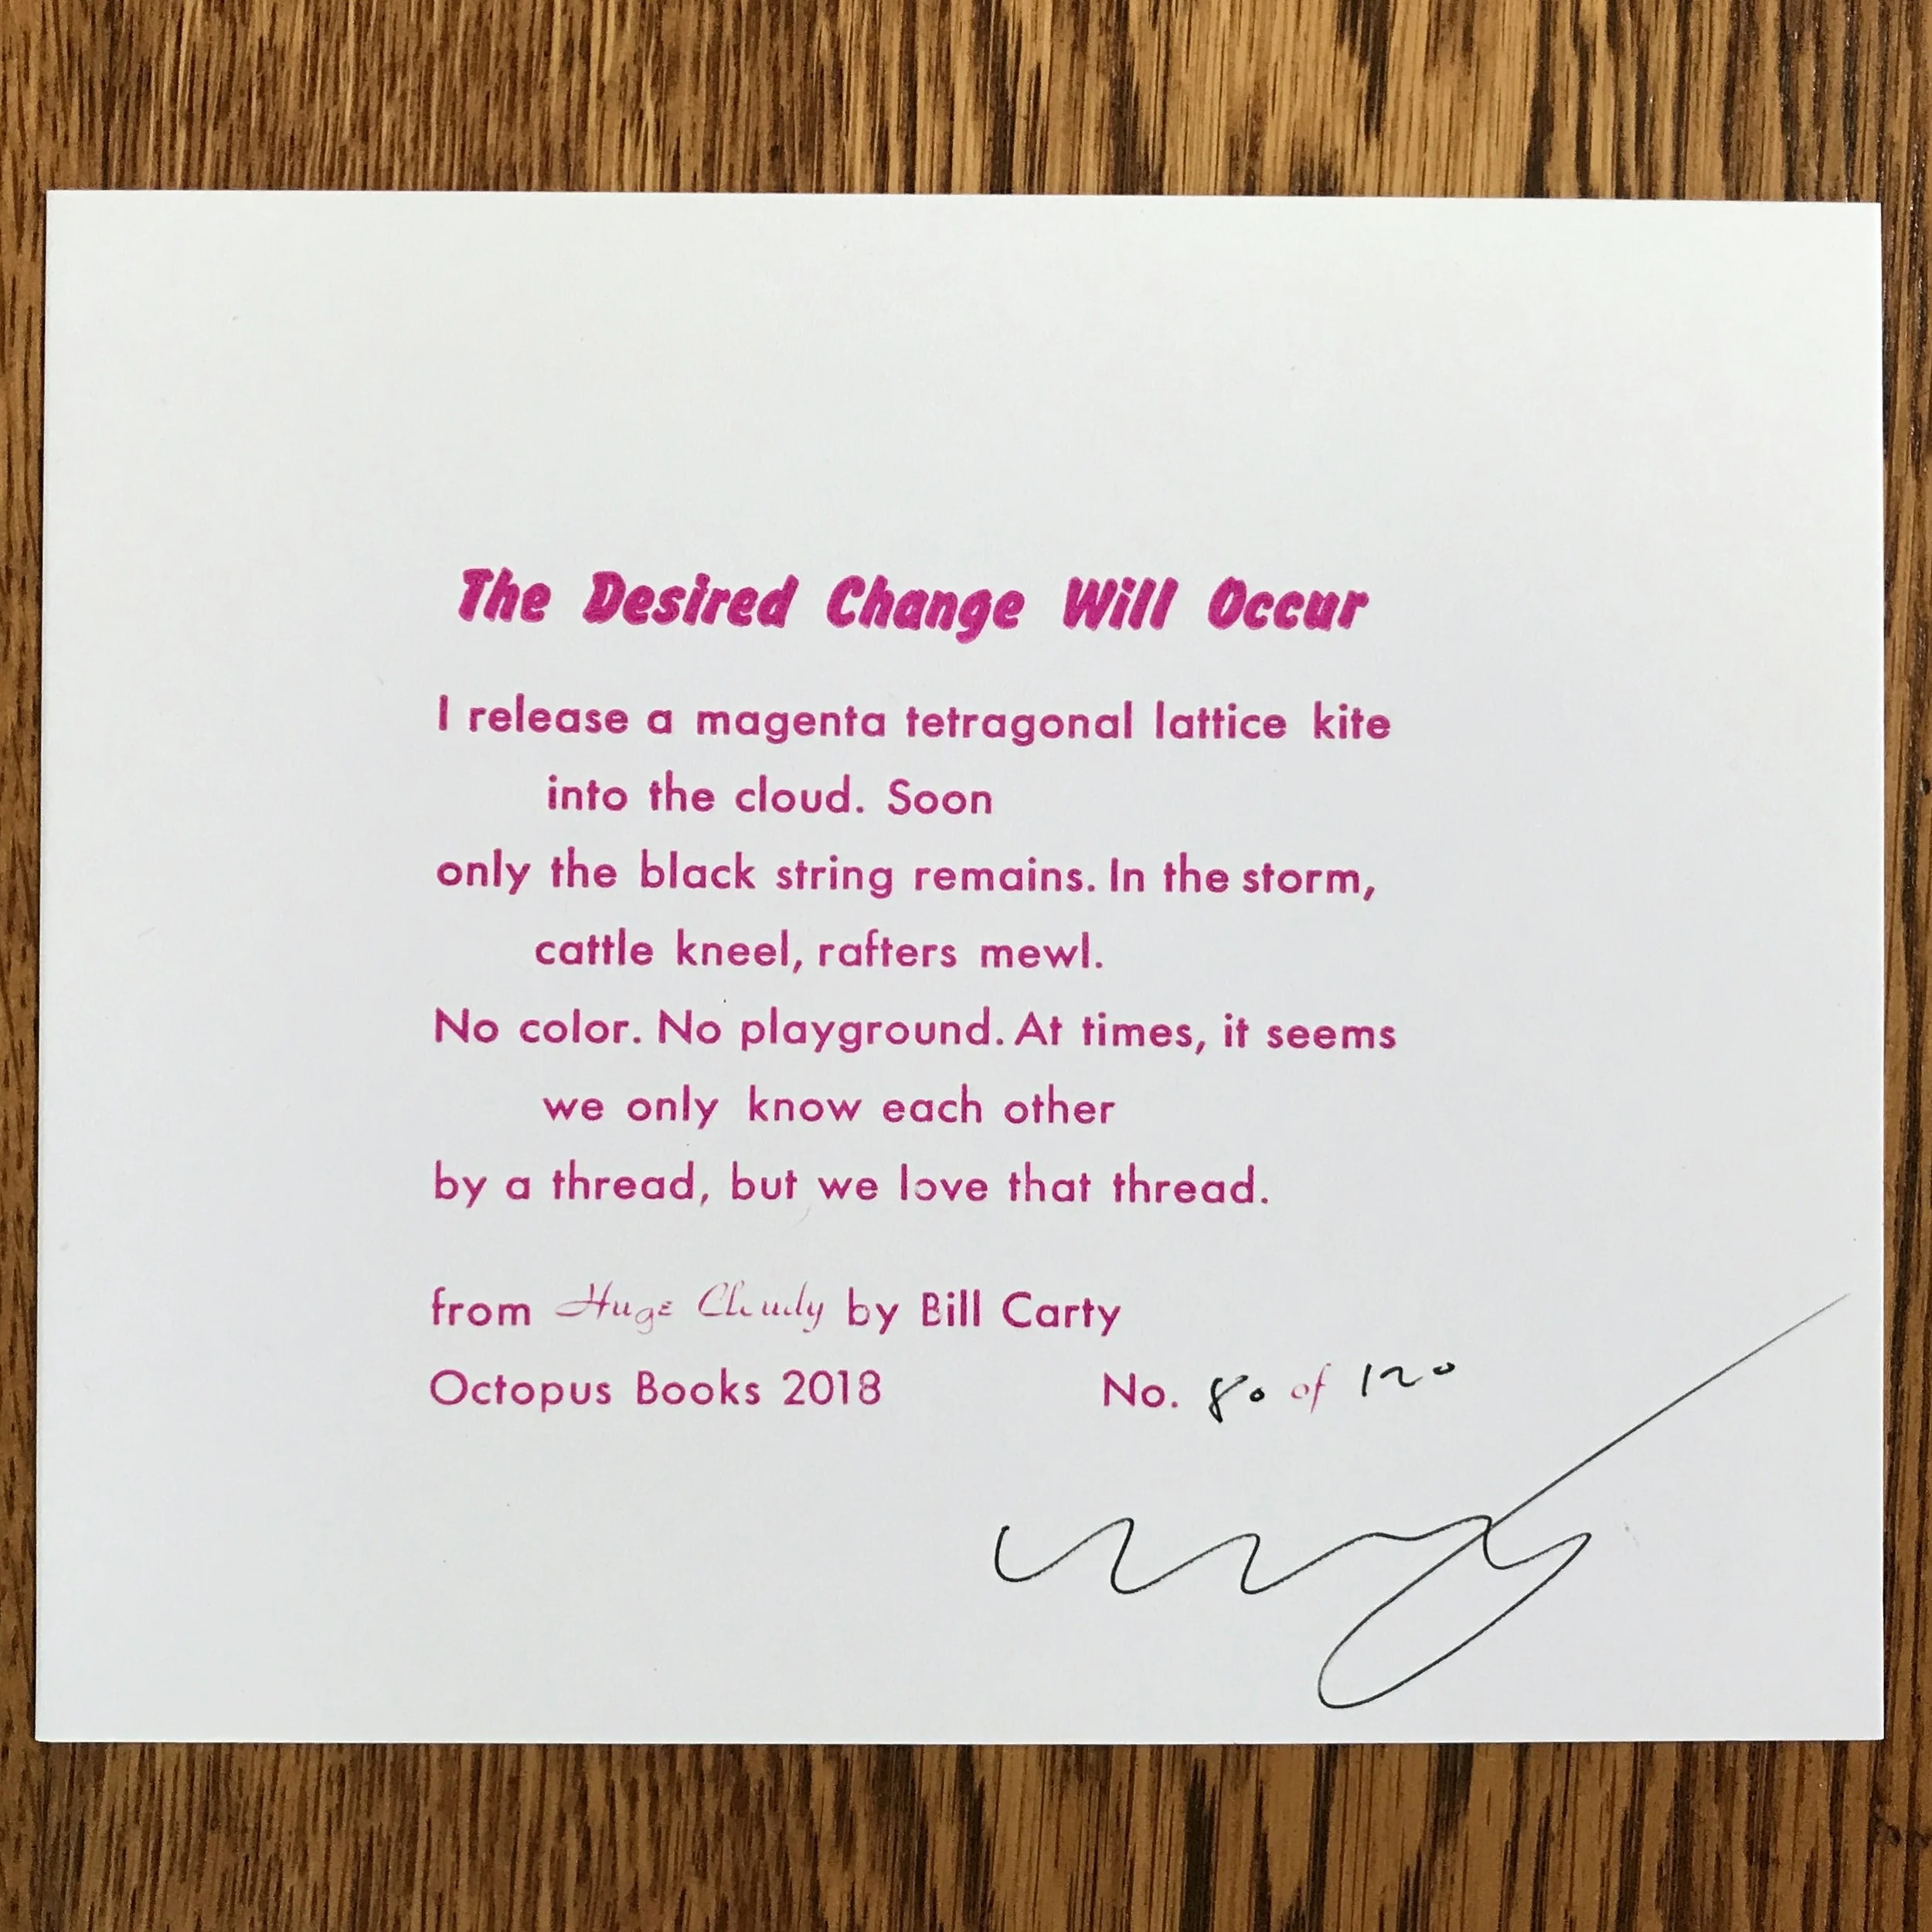 The Desired Change Will Occur
I release a magenta tetragonal lattice kite
into the cloud. Soon
only the black string remains. In the storm,
cattle kneel, rafters mewl.
No color. No playground. At times, it seems
we only know each other
by a thread, but we love that thread.
from Huge Cloudy by Bill Carty
Octopus Books 2018
No. 80 of 120